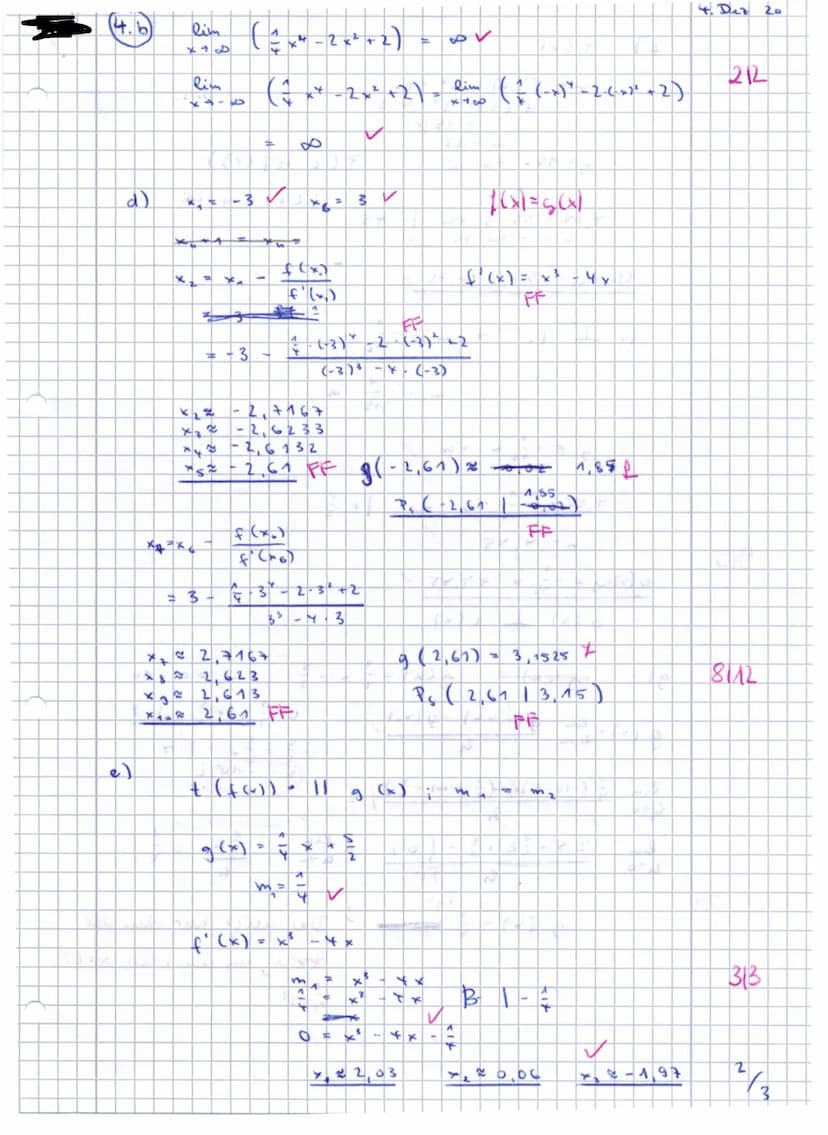 4. Dez 20
4.b) lim x→∞ (1/4 x⁴ - 2x² + 2) = ∞ ✓
lim x→-∞ (1/4 x⁴ - 2x² + 2) = lim x→∞ (1/4 (-x)⁴ - 2·(-x)² + 2) 2|2
= ∞ ✓
d) x₁ = -3 ✓ x₆ = 3 ✓ f(x)=g(x)
x₂ = x₁ - f(x₁)/f'(x₁) f'(x) = x³ - 4x
FF
FF
= -3 - (1/4 · (-3)⁴ - 2 · (-3)² + 2)/((-3)³ - 4 · (-3))
x₂ ≈ -2,7167
x₃ ≈ -2,6233
x₄ ≈ -2,6132
x₅ ≈ -2,61 FF g(-2,61) ≈ 1,85
P₅ (-2,61 | 1,85)
FF
x₇ = x₆ - f(x₆)/f'(x₆)
= 3 - (1/4 · 3⁴ - 2 · 3² + 2)/(3³ - 4 · 3)
x₇ ≈ 2,7167 g(2,61) = 3,1525
x₈ ≈ 2,623 8|12
x₉ ≈ 2,613 P₆ (2,61 | 3,15)
x₁₀ ≈ 2,61 FF FF
e) t(f(x)) || g(x) ; m₁ = m₂
g(x) = 1/4 x + 5/2
m₁ = 1/4 ✓
f'(x) = x³ - 4x
m₁ = x³ - 4x 3|3
1/4 = x³ - 4x | - 1/4
0 = x³ - 4x - 1/4 ✓
x₁ ≈ 2,03 x₂ ≈ 0,06 x₃ ≈ -1,97 ✓ 2/3